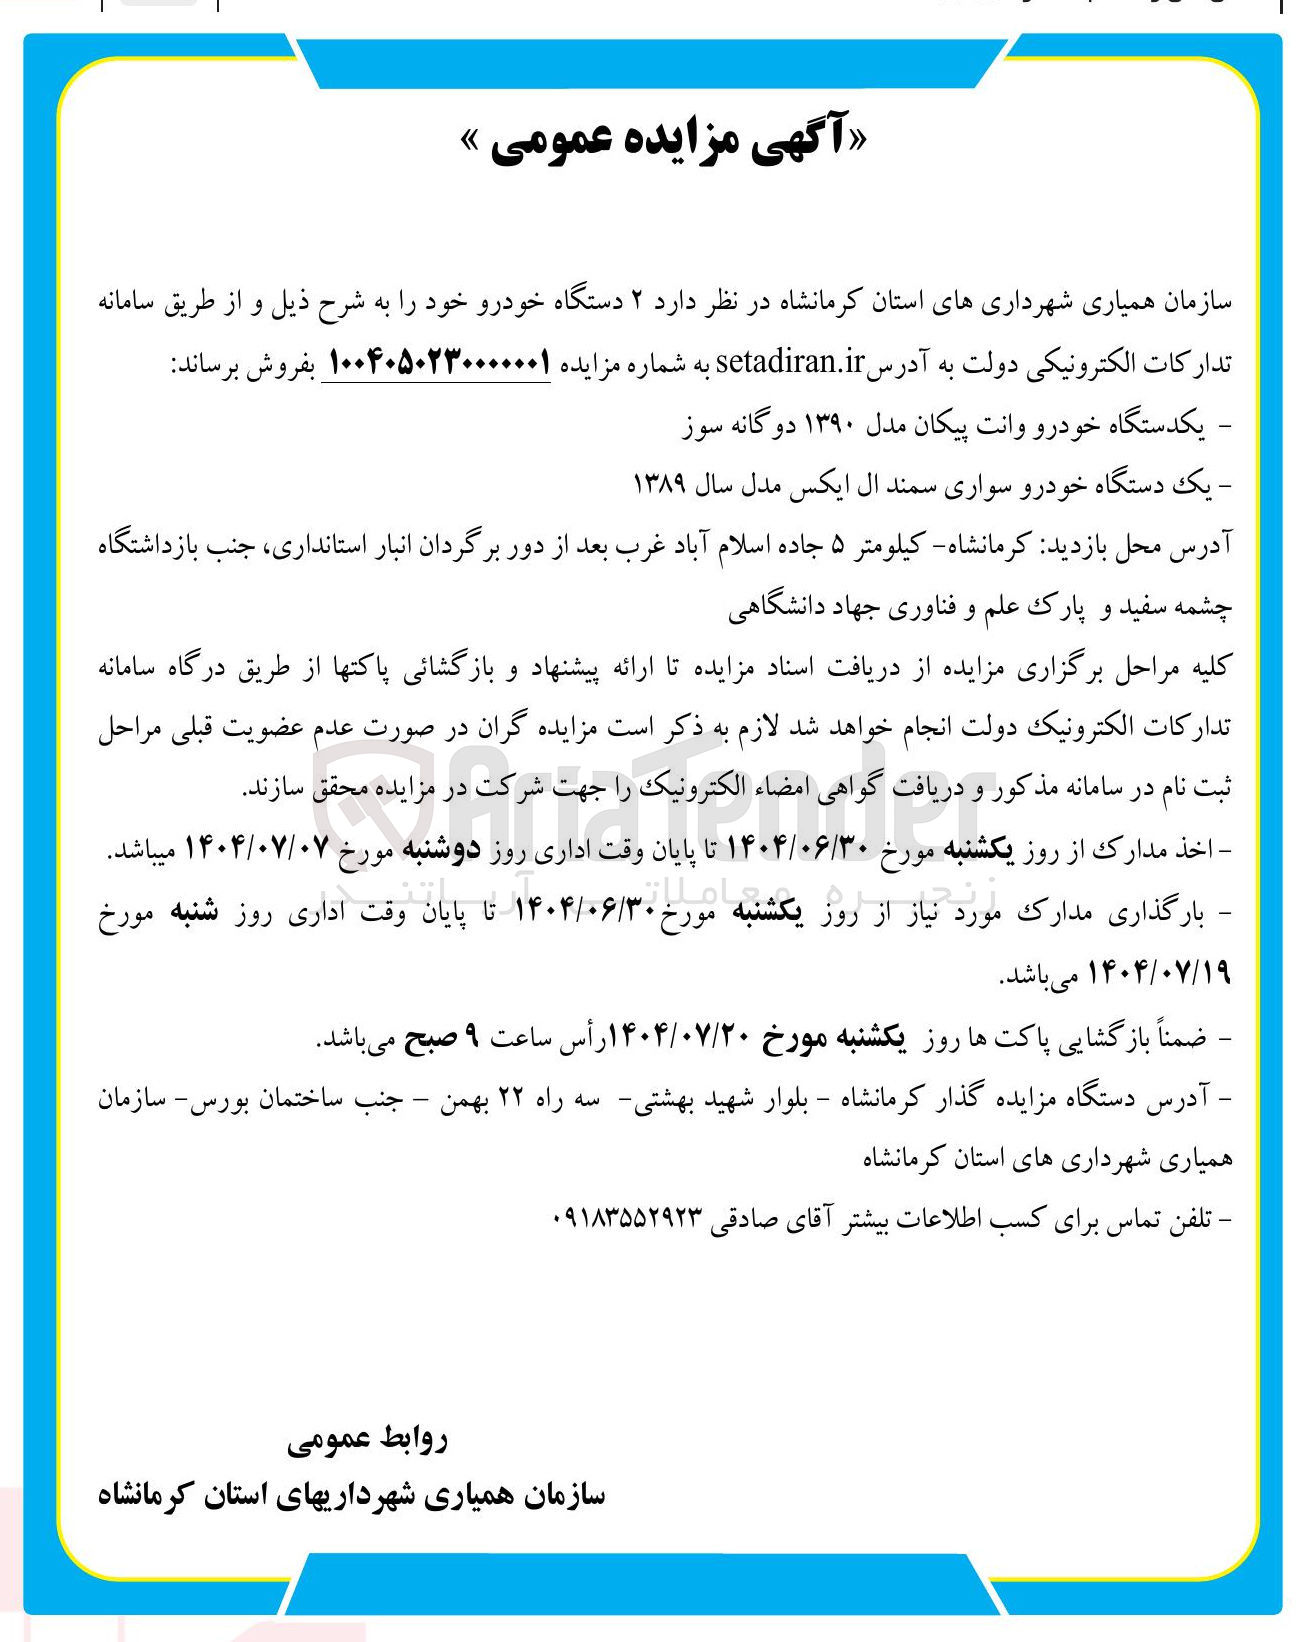 «آگهی مزایده عمومی »
سازمان همیاری شهرداری های استان کرمانشاه در نظر دارد ۲ دستگاه خودرو خود را به شرح ذیل و از طریق سامانه
تدارکات الکترونیکی دولت به آدرس setadiran.ir به شماره مزایده ۱۰۰۴۰۵۰۲۳۰۰۰۰۰۰۱ بفروش برساند:
- یکدستگاه خودرو وانت پیکان مدل ۱۳۹۰ دوگانه سوز
- یک دستگاه خودرو سواری سمند ال ایکس مدل سال ۱۳۸۹
آدرس محل بازدید: کرمانشاه- کیلومتر ۵ جاده اسلام آباد غرب بعد از دور برگردان انبار استانداری، جنب بازداشتگاه
چشمه سفید و پارک علم و فناوری جهاد دانشگاهی
کلیه مراحل برگزاری مزایده از دریافت اسناد مزایده تا ارائه پیشنهاد و بازگشائی پاکتها از طریق درگاه سامانه
تدارکات الکترونیک دولت انجام خواهد شد لازم به ذکر است مزایده گران در صورت عدم عضویت قبلی مراحل
ثبت نام در سامانه مذکور و دریافت گواهی امضاء الکترونیک را جهت شرکت در مزایده محقق سازند.
AriaTender
- اخذ مدارک از روز یکشنبه مورخ ۱۴۰۴/۰۶/۳۰ تا پایان وقت اداری روز دوشنبه مورخ ۱۴۰۴/۰۷/۰۷ میباشد.
زنجیره معاملاتی آریاتندر
- بارگذاری مدارک مورد نیاز از روز یکشنبه مورخ ۱۴۰۴/۰۶/۳۰ تا پایان وقت اداری روز شنبه مورخ
۱۴۰۴/۰۷/۱۹ می‌باشد.
- ضمناً بازگشایی پاکت ها روز یکشنبه مورخ ۱۴۰۴/۰۷/۲۰ رأس ساعت ۹ صبح می‌باشد.
- آدرس دستگاه مزایده گذار کرمانشاه - بلوار شهید بهشتی- سه راه ۲۲ بهمن – جنب ساختمان بورس- سازمان
همیاری شهرداری های استان کرمانشاه
- تلفن تماس برای کسب اطلاعات بیشتر آقای صادقی ۰۹۱۸۳۵۵۲۹۲۳
روابط عمومی
سازمان همیاری شهرداریهای استان کرمانشاه